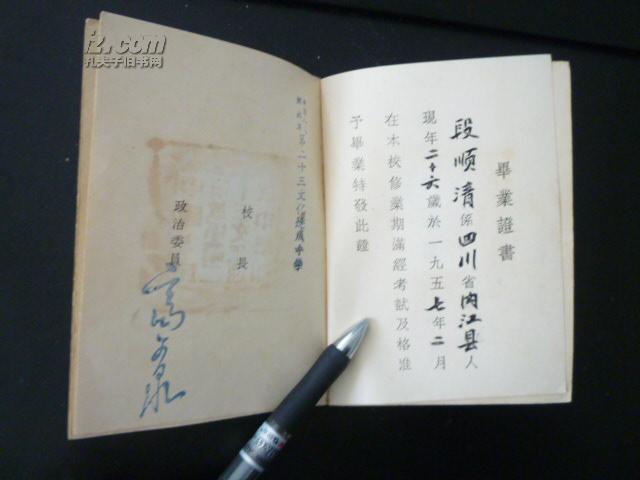 畢業證書
段顺清係四川省内江县人
現年二十六歲於一九五七年二月
在本校修業期滿經考試及格准
予畢業特發此證
第二十三文化速成中學
校長
政治委員
iz.com
孔夫子旧书网